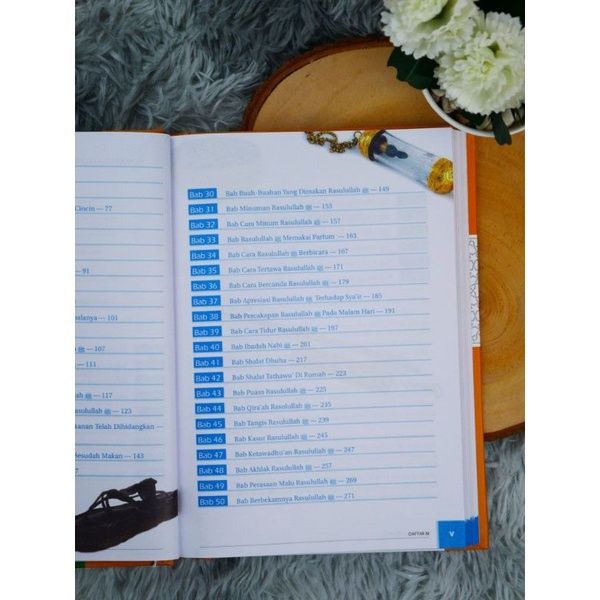 Cincin — 77
— 91
— 101
ﷺ — 107
— 111
— 117
ﷺ — 123
Telah Dihidangkan —
Sesudah Makan — 143
Bab 30 Bab Buah-Buahan Yang Dimakan Rasulullah ﷺ — 149
Bab 31 Bab Minuman Rasulullah ﷺ — 153
Bab 32 Bab Cara Minum Rasulullah ﷺ — 157
Bab 33 Bab Rasulullah ﷺ Memakai Parfum — 163
Bab 34 Bab Cara Rasulullah ﷺ Berbicara — 167
Bab 35 Bab Cara Tertawa Rasulullah ﷺ — 171
Bab 36 Bab Cara Bercanda Rasulullah ﷺ — 179
Bab 37 Bab Apresiasi Rasulullah ﷺ Terhadap Sya'ir — 185
Bab 38 Bab Percakapan Rasulullah ﷺ Pada Malam Hari — 191
Bab 39 Bab Cara Tidur Rasulullah ﷺ — 197
Bab 40 Bab Ibadah Nabi ﷺ — 201
Bab 41 Bab Shalat Dhuha — 217
Bab 42 Bab Shalat Tathawu' Di Rumah — 223
Bab 43 Bab Puasa Rasulullah ﷺ — 225
Bab 44 Bab Qira'ah Rasulullah ﷺ — 235
Bab 45 Bab Tangis Rasulullah ﷺ — 239
Bab 46 Bab Kasur Rasulullah ﷺ — 245
Bab 47 Bab Ketawadhu'an Rasulullah ﷺ — 247
Bab 48 Bab Akhlak Rasulullah ﷺ — 257
Bab 49 Bab Perasaan Malu Rasulullah ﷺ — 269
Bab 50 Bab Berbekamnya Rasulullah ﷺ — 271
DAFTAR ISI V